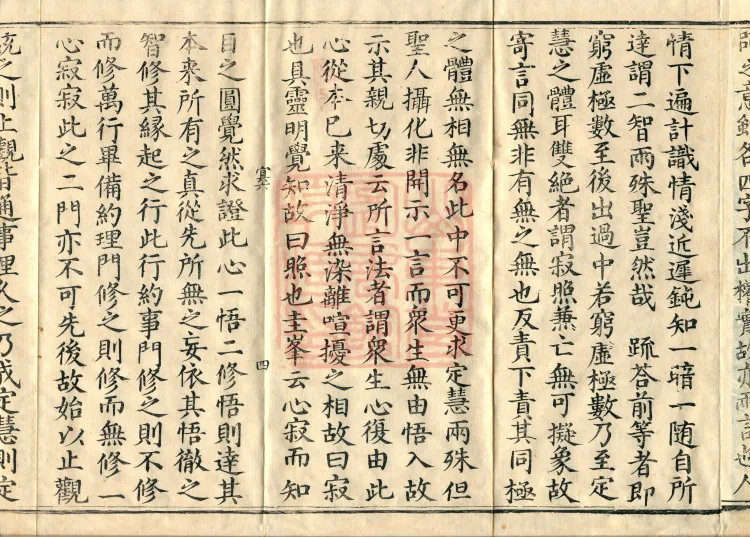 師之意錄各四字不出權實故亦兩言
情下遍計識情淺近遲鈍知一暗一随自所
達謂二智兩殊聖豈然哉 䟽荅前等者即
窮虛極數至後出過中若窮虛極數乃至定
慧之體耳雙絶者謂寂照兼亡無可擬象故
寄言同無非有無之無也反責下責其同極
之體無相無名此中不可更求定慧兩殊但
聖人攝化非開示一言而衆生無由悟入故
示其親切處云所言法者謂衆生心復由此
心從本已来清淨無染離喧擾之相故曰寂
也具靈明覺知故曰照也圭峯云心寂而知
四
目之圓覺然求證此心一悟二修悟則達其
本来所有之真從先所無之妄依其悟徹之
智修其縁起之行此行約事門修之則不修
而修萬行畢備約理門修之則修而無修一
心寂寂此之二門亦不可先後故始以止觀
統之則止觀皆通事理久之乃成定慧則定